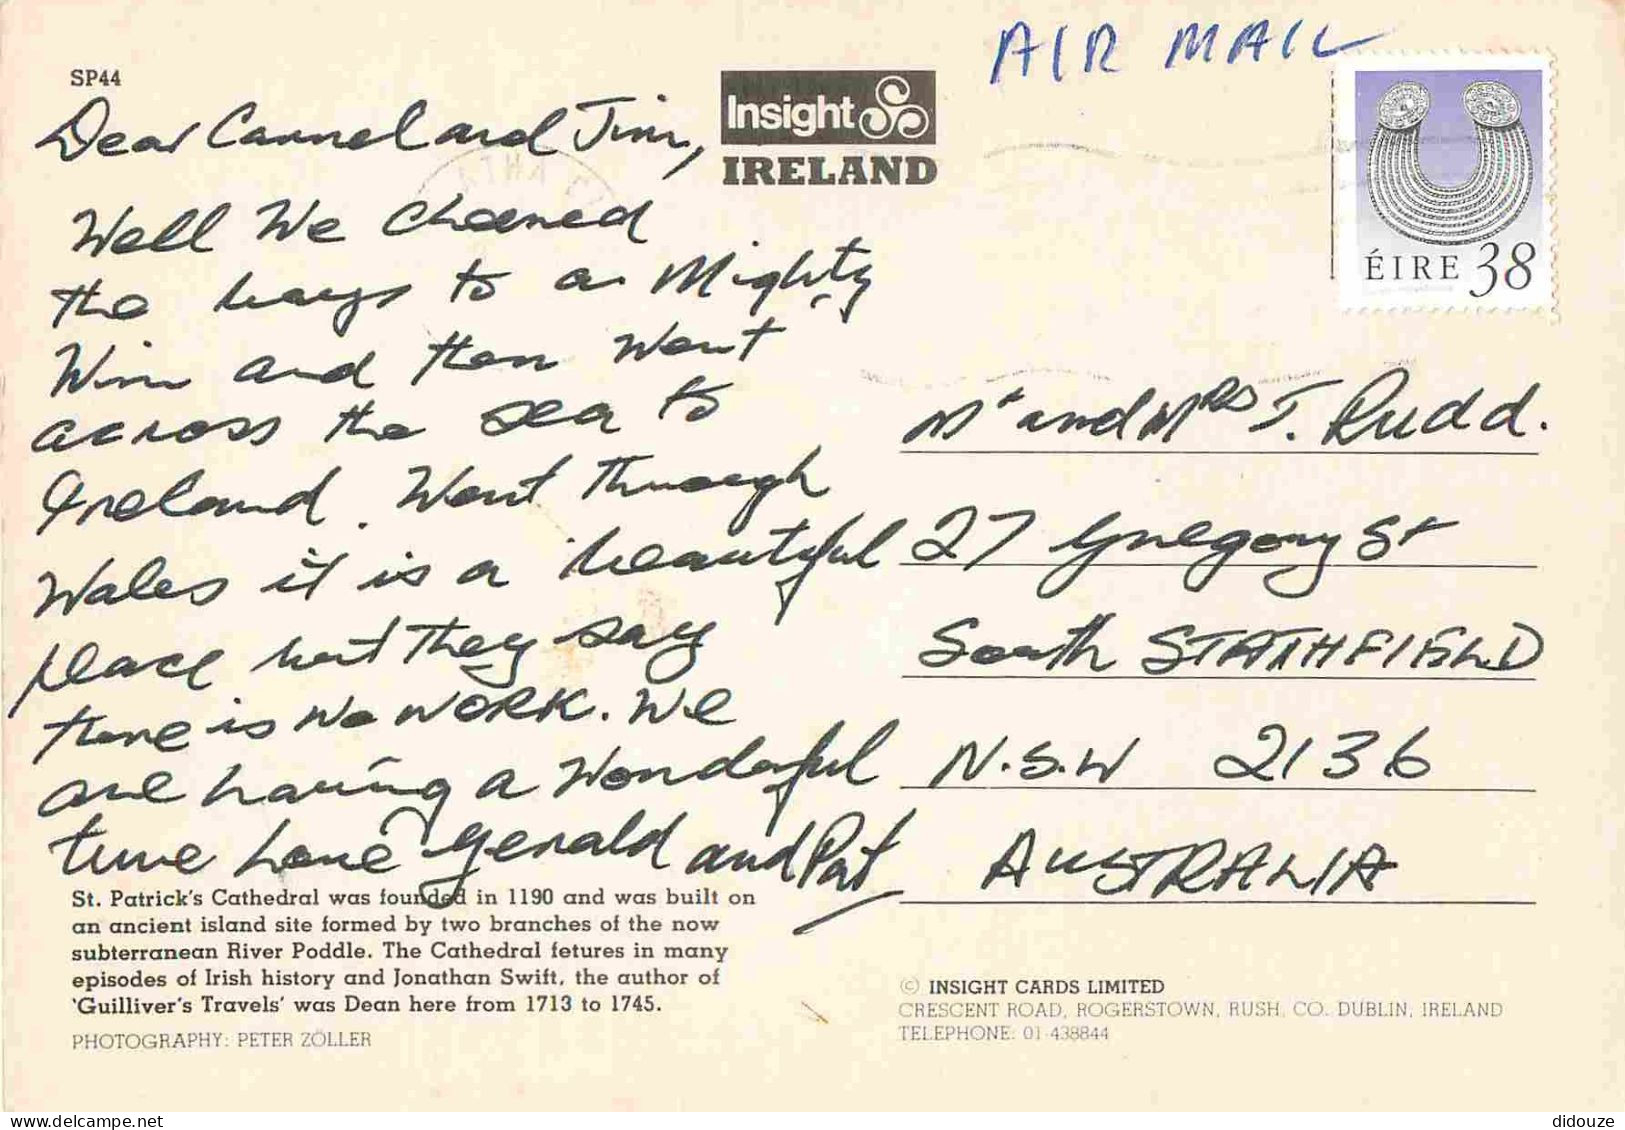 AIR MAIL
SP44
Insight
IRELAND
ÉIRE 38
Dear Carmel and Jim,
Well We cheered
the boys to a Mighty
Win and then Went
across the sea to
Ireland. Went Through
Wales it is a beautiful
place but They say
there is No WORK. We
are having a Wonderful
time Love Gerald and Pat
Mr and MRS J. Rudd.
27 Gregory St
South STATHFIELD
N.S.W 2136
AUSTRALIA
St. Patrick's Cathedral was founded in 1190 and was built on
an ancient island site formed by two branches of the now
subterranean River Poddle. The Cathedral fetures in many
episodes of Irish history and Jonathan Swift, the author of
'Guilliver's Travels' was Dean here from 1713 to 1745.
PHOTOGRAPHY: PETER ZÖLLER
© INSIGHT CARDS LIMITED
CRESCENT ROAD, ROGERSTOWN, RUSH, CO. DUBLIN, IRELAND
TELEPHONE: 01-438844
www.delcampe.net
didouze